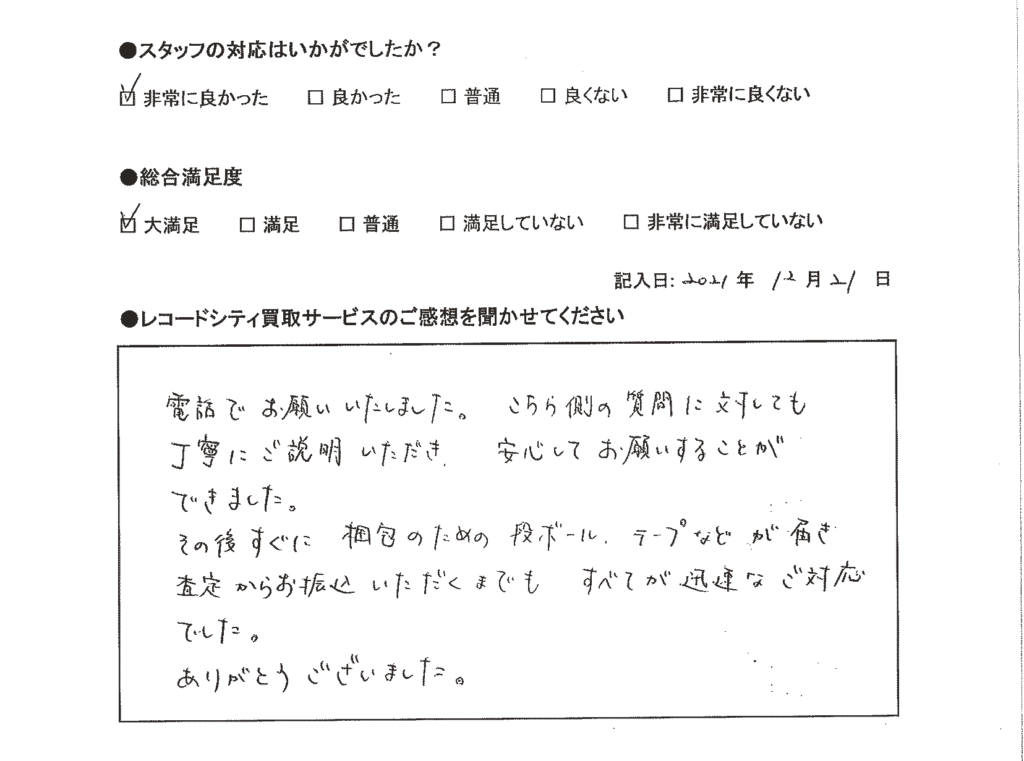 ●スタッフの対応はいかがでしたか？
☑ 非常に良かった □ 良かった □ 普通 □ 良くない □ 非常に良くない
●総合満足度
☑ 大満足 □ 満足 □ 普通 □ 満足していない □ 非常に満足していない
記入日: 2021 年 12 月 21 日
●レコードシティ買取サービスのご感想を聞かせてください
電話でお願いいたしました。こちら側の質問に対しても
丁寧にご説明いただき、安心してお願いすることが
できました。
その後すぐに梱包のための段ボール、テープなどが届き
査定からお振込いただくまでも すべてが迅速なご対応
でした。
ありがとうございました。